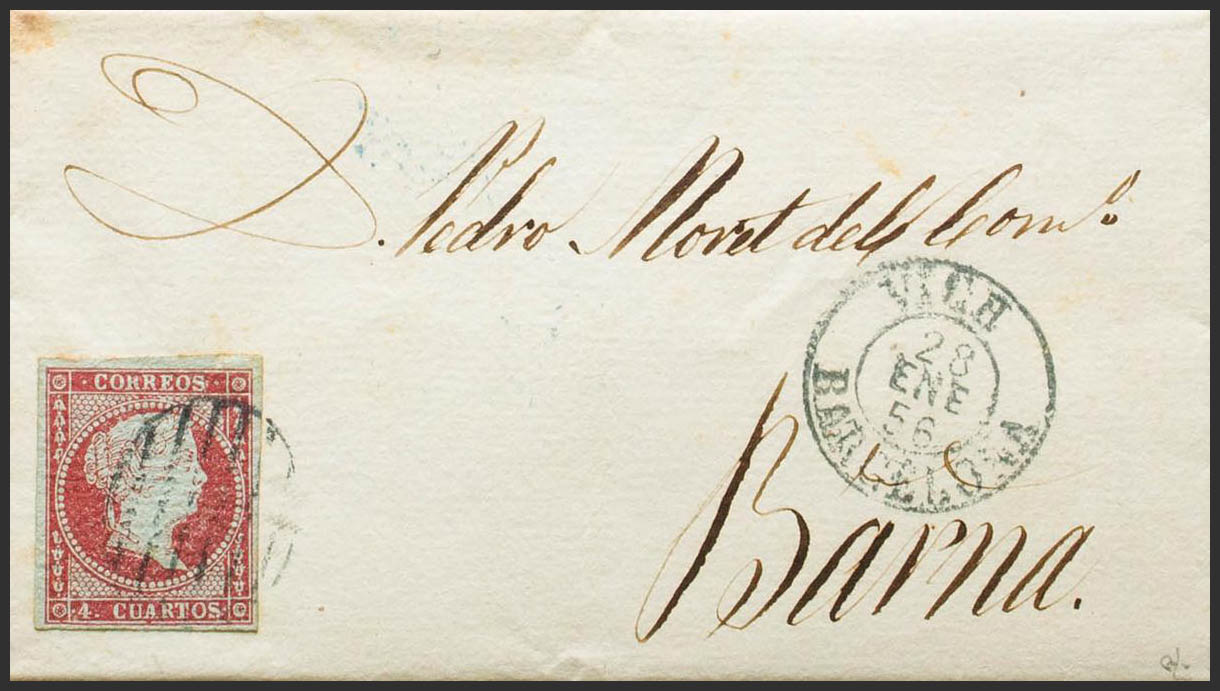 D. Pedro Moret del Com.º
VICH
28
ENE
56
BARCELONA
CORREOS
4. CUARTOS.
Barna.